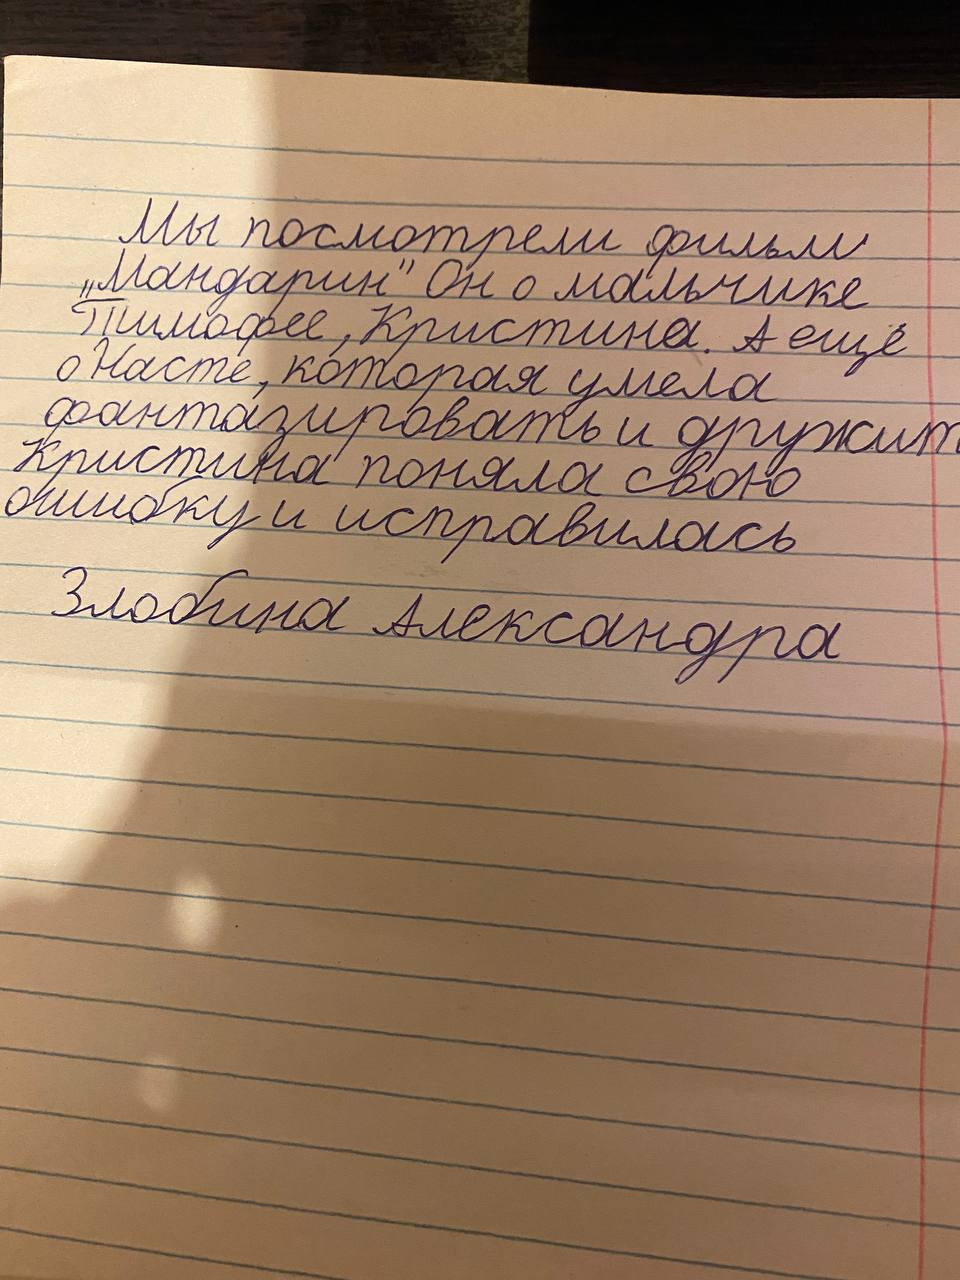 Мы посмотрели фильм
„Мандарин" Он о мальчике
Тимофее, Кристина. А ещё
о Насте, которая умела
фантазировать и дружит
Кристина поняла свою
ошибку и исправилась
Злобина Александра